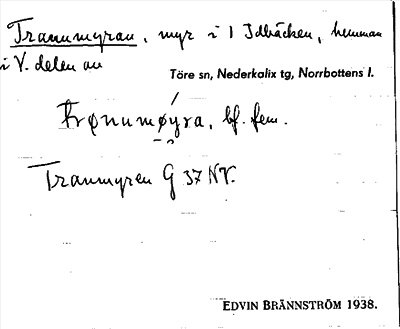 Tranumyran, myr i 1 Idbäcken, hemman
i V. delen av
Töre sn, Nederkalix tg, Norrbottens l.
Trønumøyra, bf. fem.
Tranmyren G 37 NV.
EDVIN BRÄNNSTRÖM 1938.